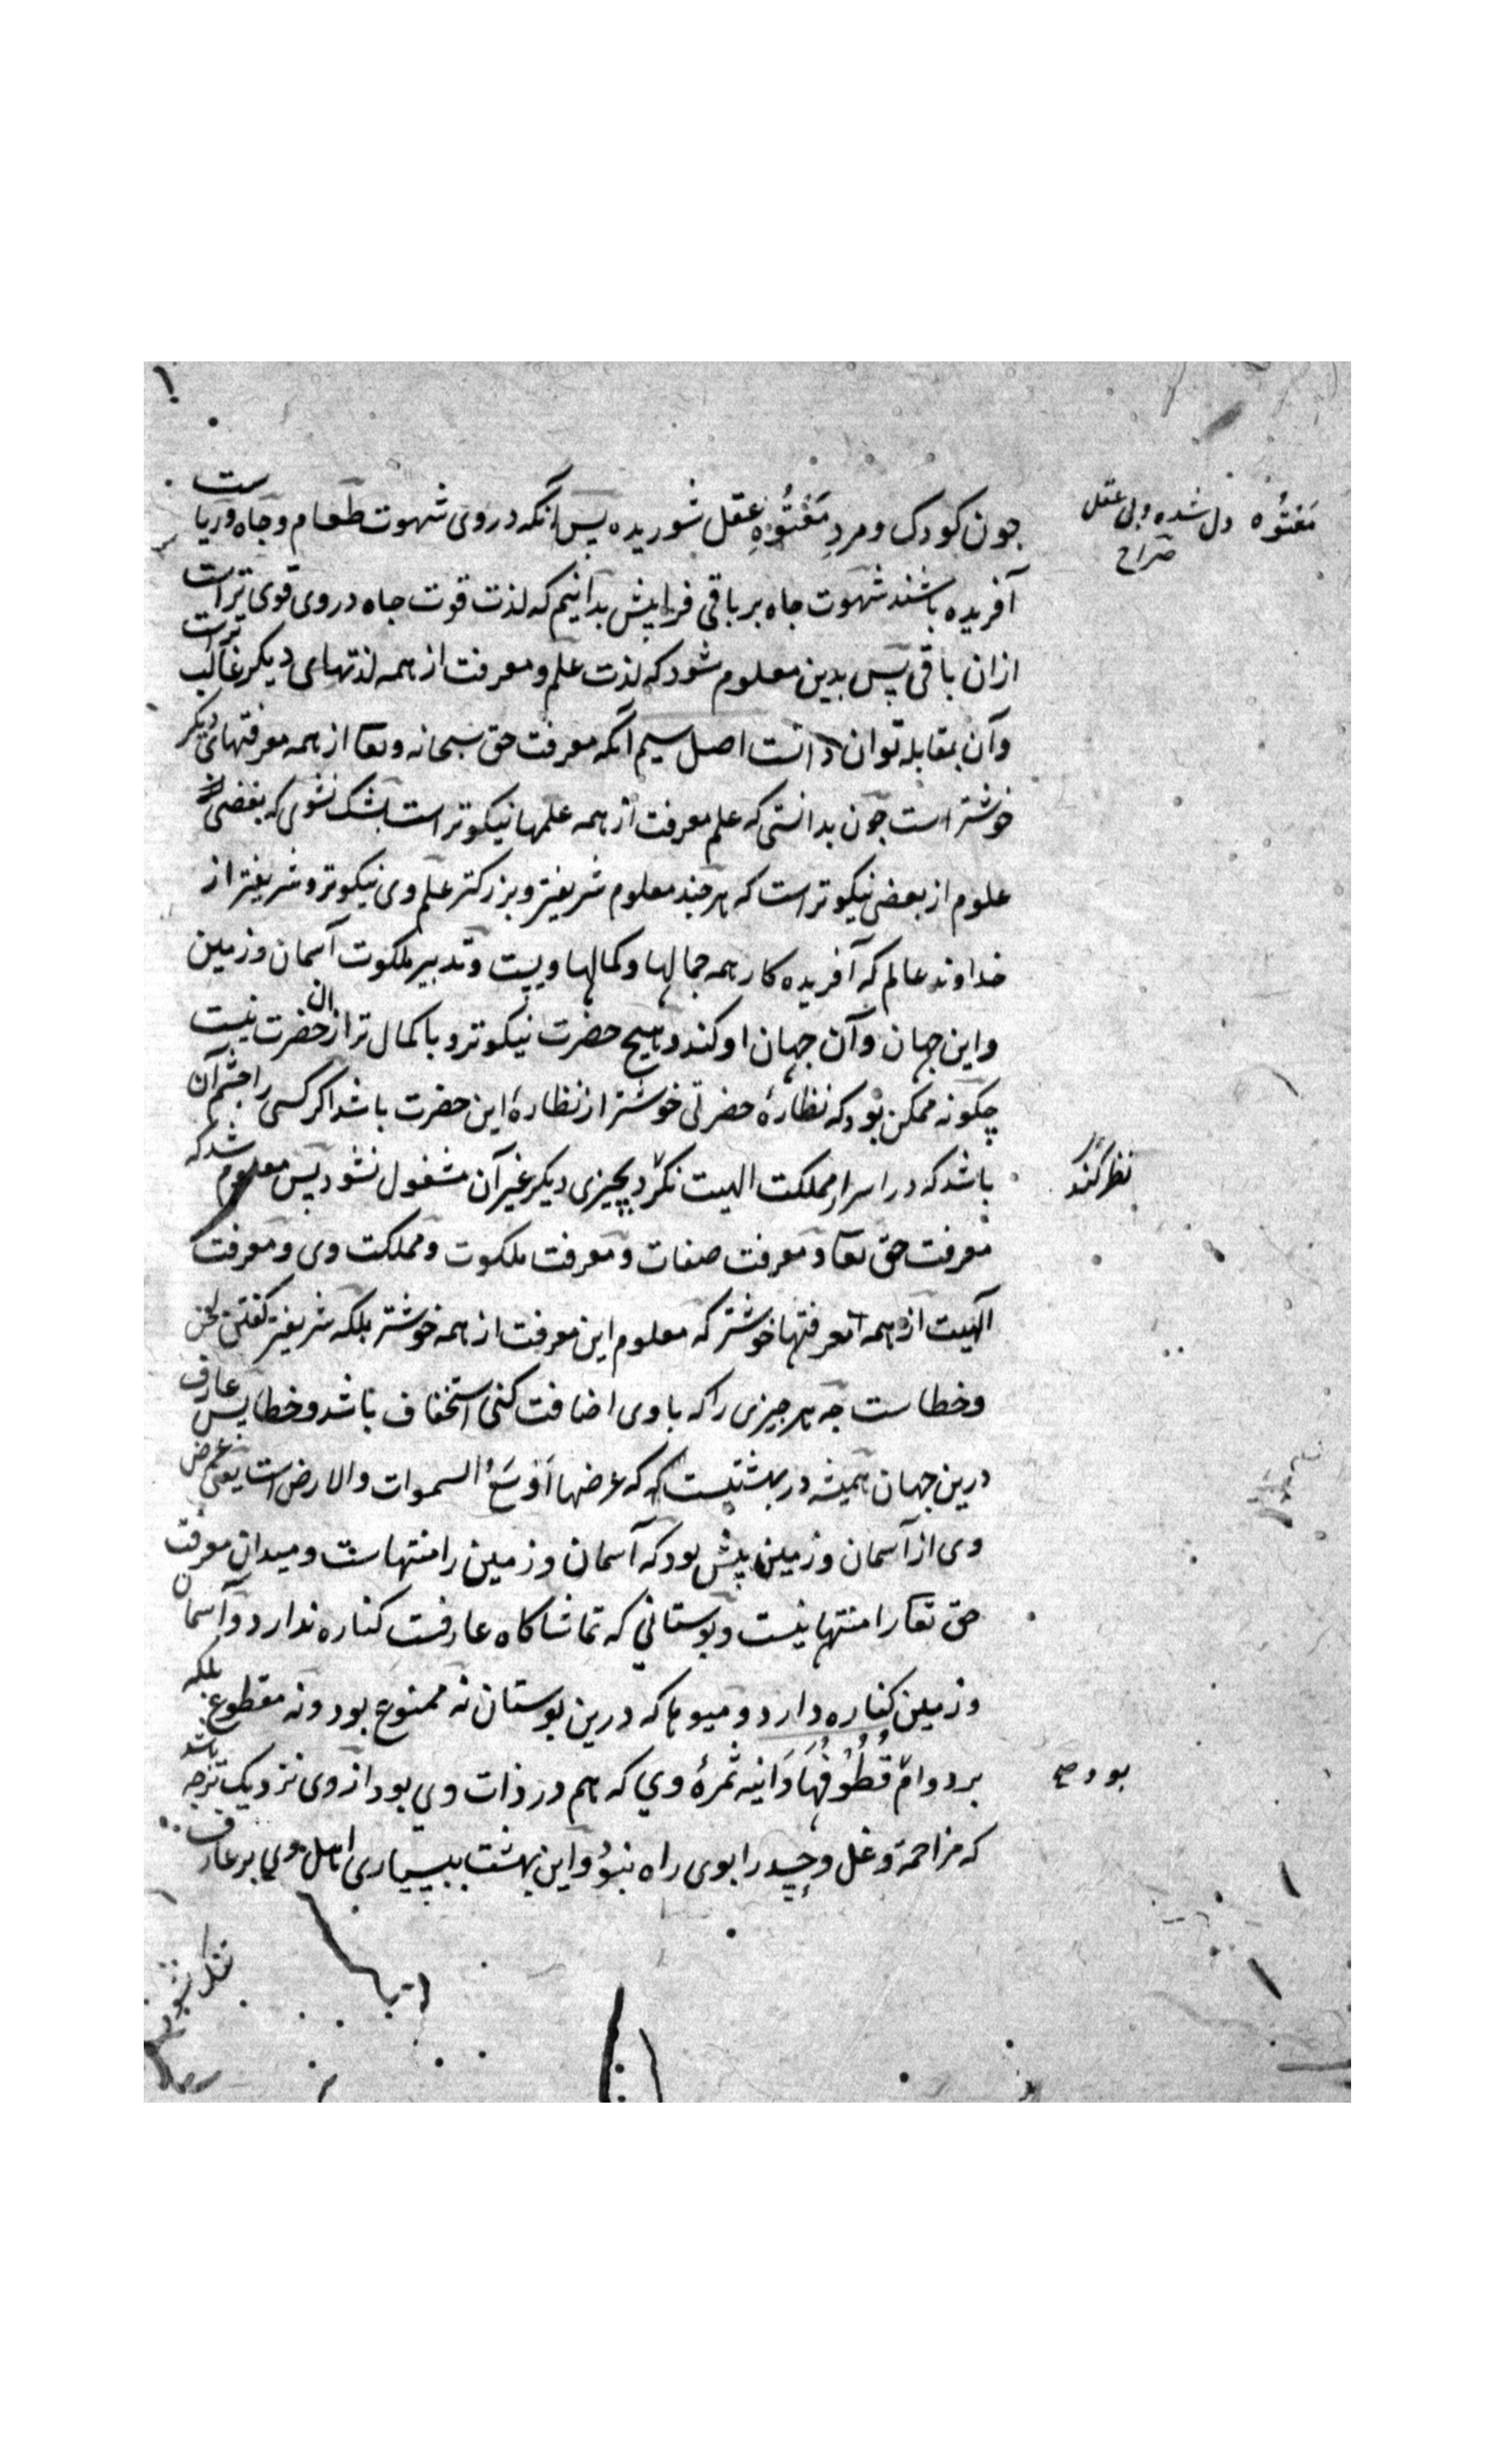 جون کودک و مردِ مَعْتُوْهِ عقل شوریده پس آنکه در وی شهوت طعام و جاه و ریاست
مَعْتُوْه دل شده و بی عقل
صراح
آفریده باشند شهوت جاه بر باقی فرا پیش بدانیم که لذت قوت جاه در وی قوی تر است
ازان باقی پس بدین معلوم شود که لذت علم و معرفت از همه لذتهای دیکر غالب تر است
وآن بمقابله توان دانست اصل سیم آنکه معرفت حق سبحانه وتعا از همه معرفتهای دیکر
خوشتر است جون بدانستی که علم معرفت از همه علمها نیکوتر است بشک نشوی که بعضی
علوم از بعضی نیکوتر است که هرجند معلوم شریفتر و بزرکتر علم وی نیکوتر و شریفتر از
خداوند عالم که آفریده کار همه جمالها و کمالها ویست و تدبیر ملکوت آسمان و زمین
واین جهان وآن جهان او کند و هیج حضرت نیکوتر و باکمال تر ازان حضرت نیست
چکونه ممکن بود که نظارهٔ حضرتی خوشتر از نظارهٔ این حضرت باشد اکر کسی را جشم آن
باشد که در اسرار مملکت الهیت نکرد بچیزی دیکر غیر آن مشغول نشود پس معلوم شد که
نظر کند
معرفت حق تعا و معرفت صفات و معرفت ملکوت و مملکت وی و معرفت
الهیت از همه معرفتها خوشتر که معلوم این معرفت از همه خوشتر بلکه شریفتر کفتن
وخطاست جه هرجیزی را که با وی اضافت کنی استخفاف باشد و خطا پس عارف
درین جهان همیشه در بهشتیست که عرضها اَوْسَعُ السموات والارض است یعنی عرض
وی از آسمان و زمین بیش بود که آسمان و زمین را منتهاست و میدان معرفت
حق تعا را منتها نیست و بوستانی که تماشا کاه عارفست کناره ندارد و آسمان
و زمین کناره دارد و میوها که درین بوستان نه ممنوع بود و نه مقطوع بلکه
بر دوام قُطُوْفُهَا دَانِیه ثمرهٔ وی که هم در ذات وی بود از وی نزدیک تر جه باشد
بود صح
که مزاحمة و غل و حسد را بوی راه نبود و این بهشت ببسیاری اهل وی بر عارف
تنک نشود